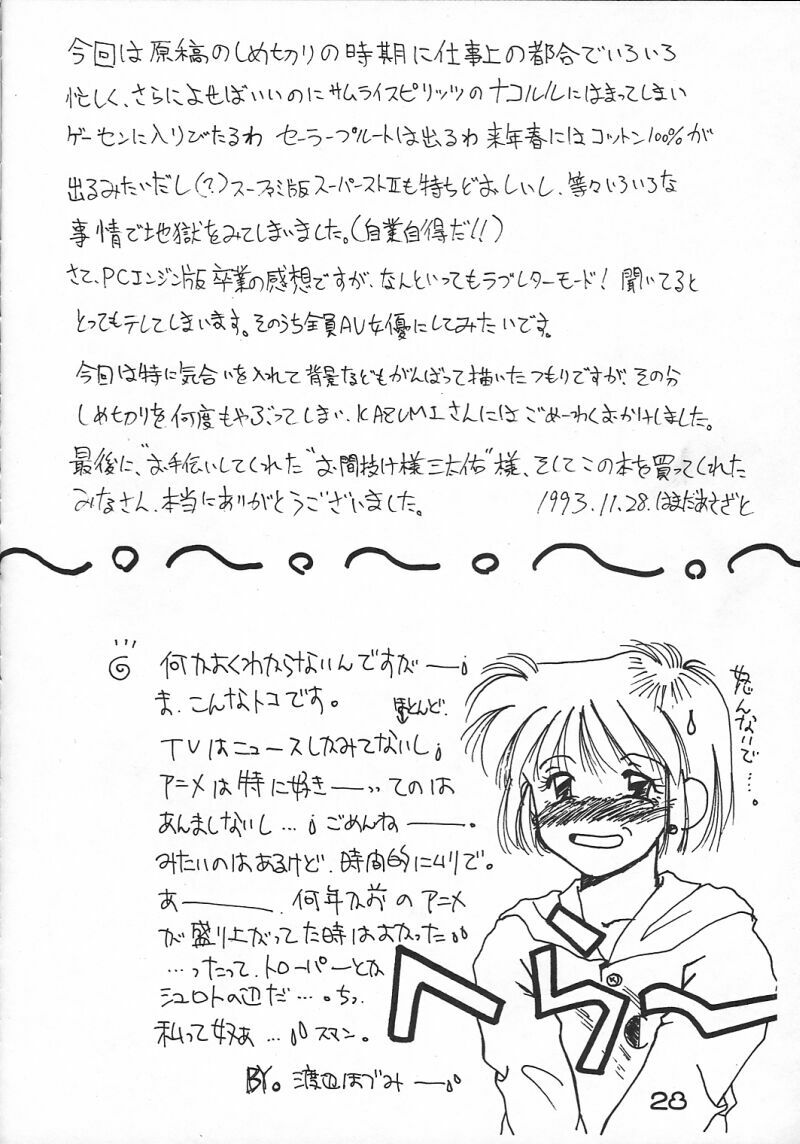 今回は原稿のしめ切りの時期に仕事上の都合でいろいろ
忙しく、さらによせばいいのにサムライスピリッツのナコルルにはまってしまい
ゲーセンに入りびたるわ セーラープルートは出るわ 来年春にはコットン100%が
出るみたいだし(?)スーファミ版スーパーストⅡも待ちどおしいし、等々いろいろな
事情で地獄をみてしまいました。(自業自得だ!!)
さて、PCエンジン版卒業の感想ですが、なんといってもラブレターモード! 聞いてると
とってもテレてしまいます。そのうち全員AV女優にしてみたいです。
今回は特に気合いを入れて背景などもがんばって描いたつもりですが、その分
しめ切りを何度もやぶってしまい、KAZUMIさんにはごめーわくおかけしました。
最後に、"お手伝いしてくれた"お間抜け様三太佑"様、そしてこの本を買ってくれた
みなさん、本当にありがとうございました。 1993.11.28.はまだあさざと
何かよくわからないんですが──
ま、こんなトコです。
ほとんど
TVはニュースしかみてないし
アニメは特に好き──ってのは
あんましないし…ごめんね──。
みたいのはあるけど、時間的にムリで。
あ───、何年か前のアニメ
が盛り上がってた時はよかった
…ったって、トルーパーとか
シュラトの辺だ…。ちっ
私って奴ぁ…スマン。
BY。渡辺ほずみ──
怒んないで…。
へらへ〜
28